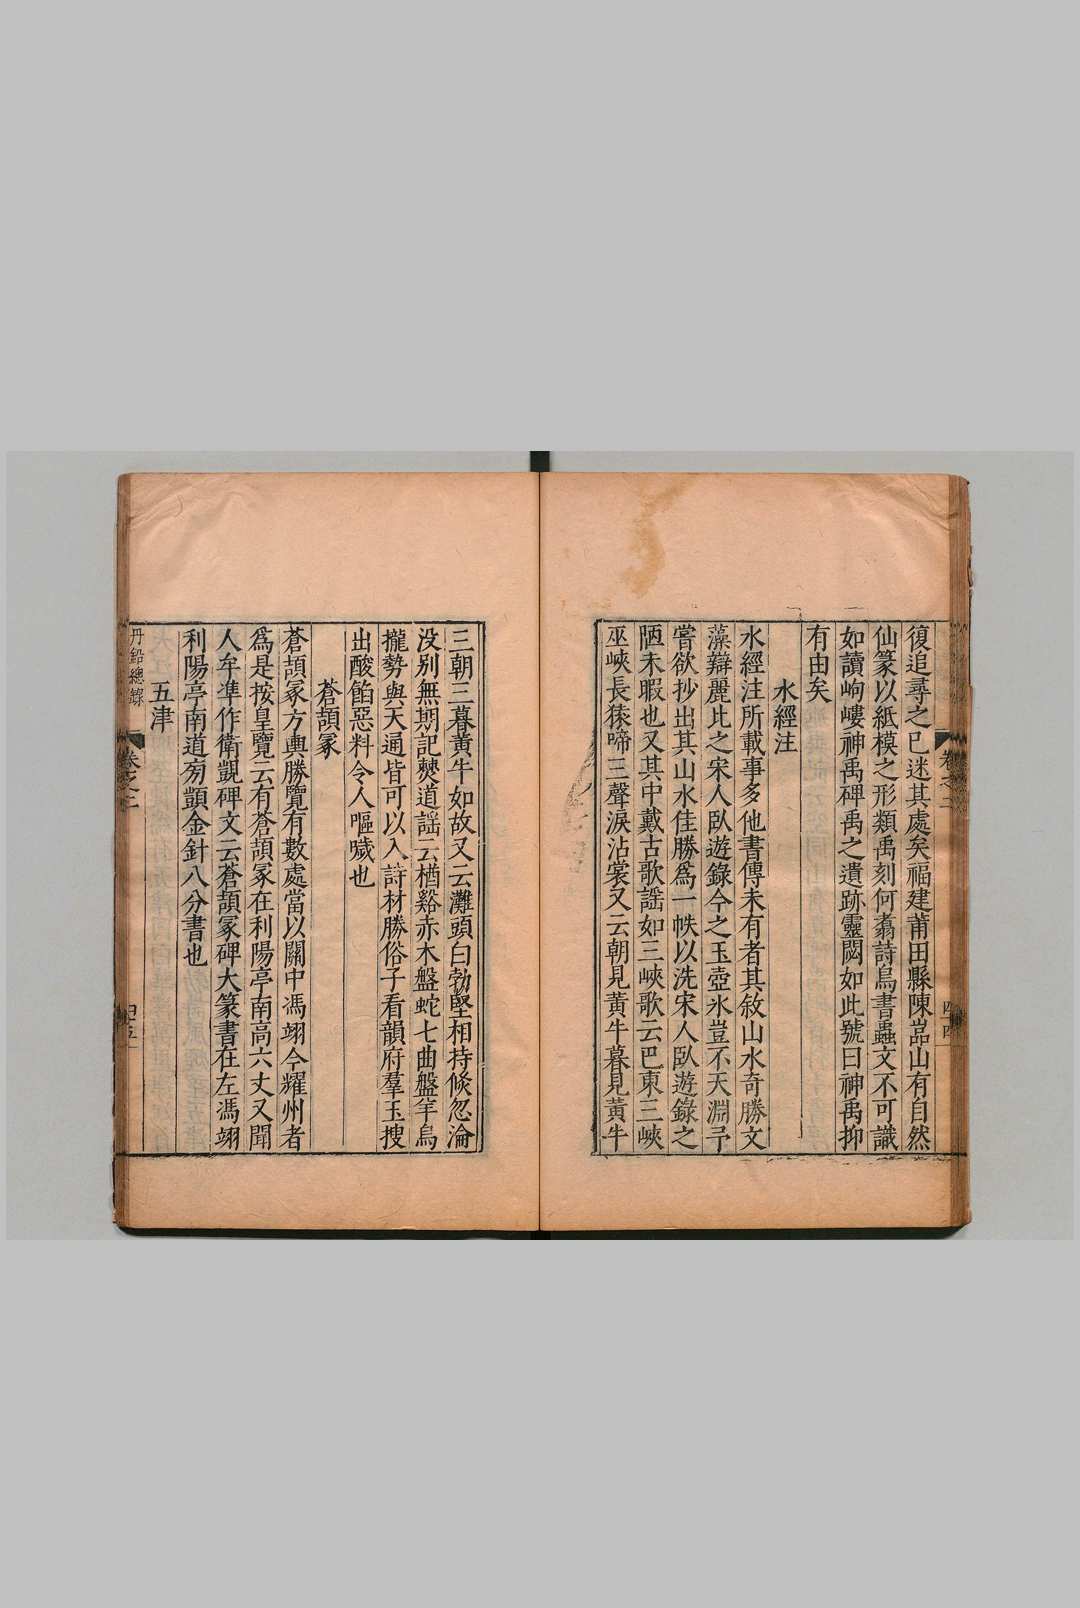 復追尋之已迷其處矣福建莆田縣陳嵓山有自然
仙篆以紙模之形類禹刻何翥詩烏書蟲文不可識
如讀岣嶁神禹碑禹之遺跡靈閟如此號曰神禹抑
有由矣
水經注
水經注所載事多他書傳未有者其敘山水奇勝文
藻辯麗比之宋人臥遊錄今之玉壺氷豈不天淵予
嘗欲抄出其山水佳勝爲一帙以洗宋人臥遊錄之
陋未暇也又其中戴古歌謡如三峽歌云巴東三峽
巫峽長猨啼三聲淚沾裳又云朝見黃牛暮見黃牛
三朝三暮黃牛如故又云灘頭白勃堅相持倐忽淪
没别無期記僰道謡云楢谿赤木盤蛇七曲盤羊烏
攏勢與天通皆可以入詩材勝俗子看韻府羣玉搜
出酸餡惡料令人嘔噦也
蒼頡冢
蒼頡冢方輿勝覽有數處當以關中馮翊今耀州者
爲是按皇覽云有蒼頡冢在利陽亭南高六丈又聞
人牟準作衛覬碑文云蒼頡冢碑大篆書在左馮翊
利陽亭南道旁顗金針八分書也
五津
丹鉛總錄
卷之二
四五
卷之二
四四